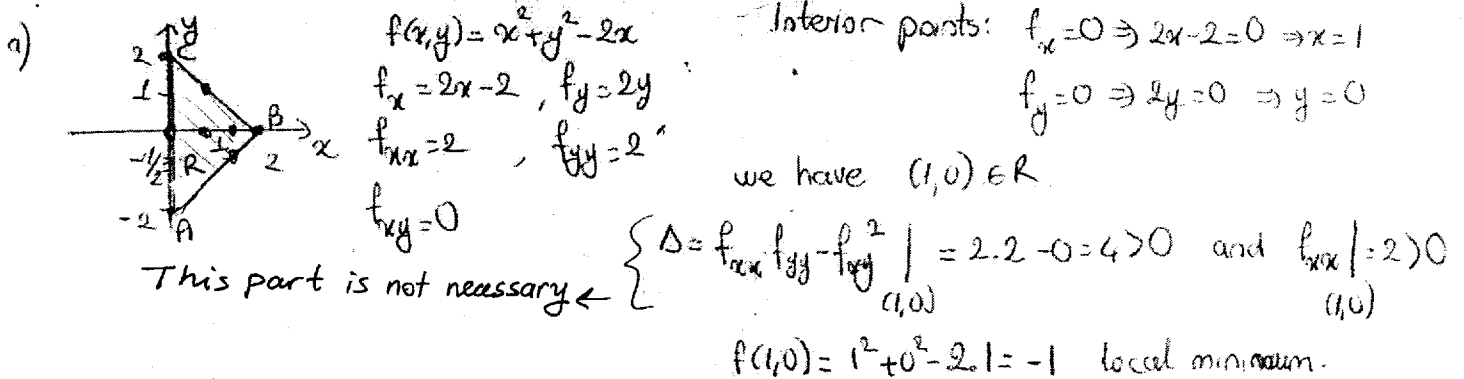 a)
y
2 C
1
B
x
-1/2 R 1 2
-2 A
f(x,y) = x² + y² - 2x
f_x = 2x - 2 , f_y = 2y
f_xx = 2 , f_yy = 2
f_xy = 0
This part is not necessary ←
- Interior points: f_x = 0 ⇒ 2x - 2 = 0 ⇒ x = 1
f_y = 0 ⇒ 2y = 0 ⇒ y = 0
we have (1,0) ∈ R
{ Δ = f_xx f_yy - f_xy² |_(1,0) = 2.2 - 0 = 4 > 0 and f_xx |_(1,0) = 2 > 0
f(1,0) = 1² + 0² - 2.1 = -1 local minimum.